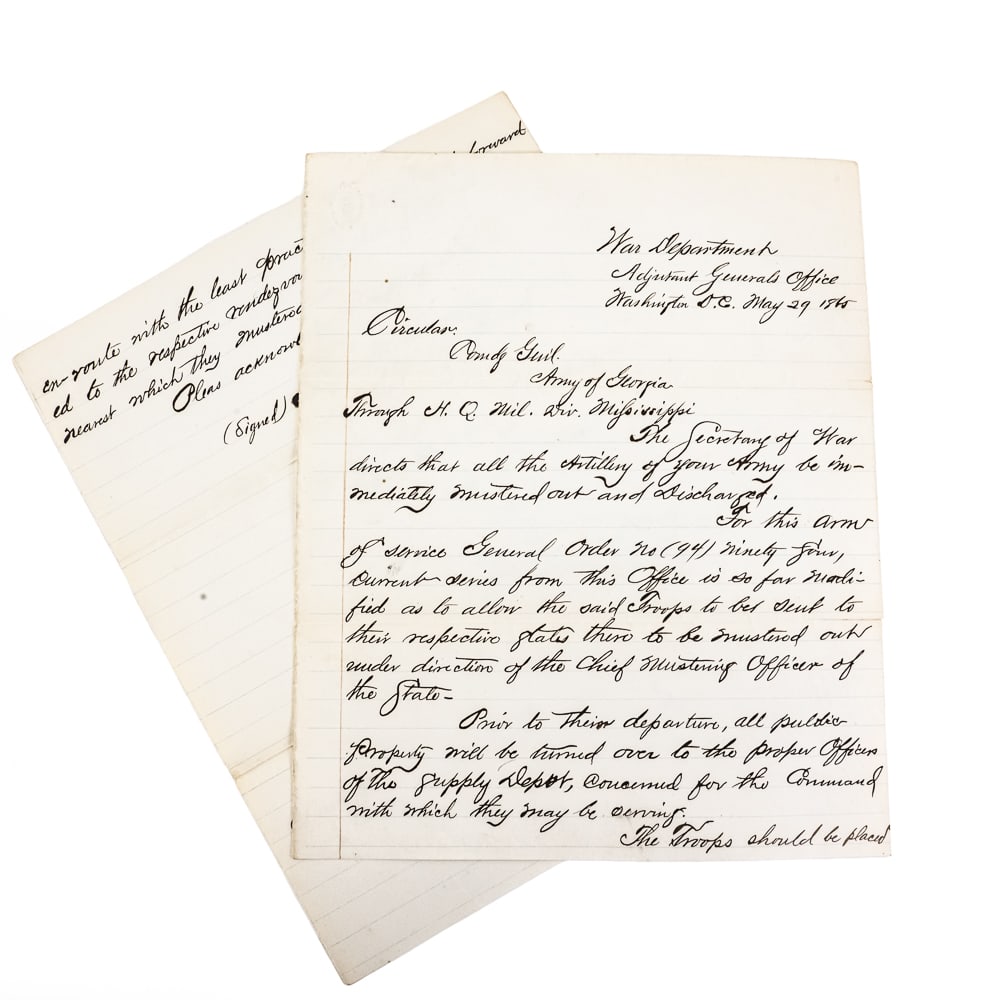 War Department
Adjutant Generals Office
Washington D.C. May 29 1865
Circular.
Comdg Genl.
Army of Georgia
Through H. Q. Mil. Div. Mississippi
The Secretary of War
directs that all the Artillery of your Army be im-
mediately mustered out and Discharged.
For this arm
of service General Order No (94) Ninety four,
current series from this Office is so far modi-
fied as to allow the said Troops to be sent to
their respective states there to be mustered out
under direction of the Chief Mustering Officer of
the State-
Prior to their departure, all public
property will be turned over to the proper Officers
of the Supply Depot, concerned for the Command
with which they may be serving.
The Troops should be placed
forward
en-route with the least prac
ed to the respective rendezvou
nearest which they mustered
Pleas acknowl
(Signed)